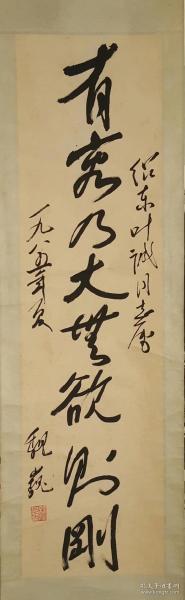 绍东叶诚同志属
有容乃大无欲则刚
一九八五年夏
魏巍